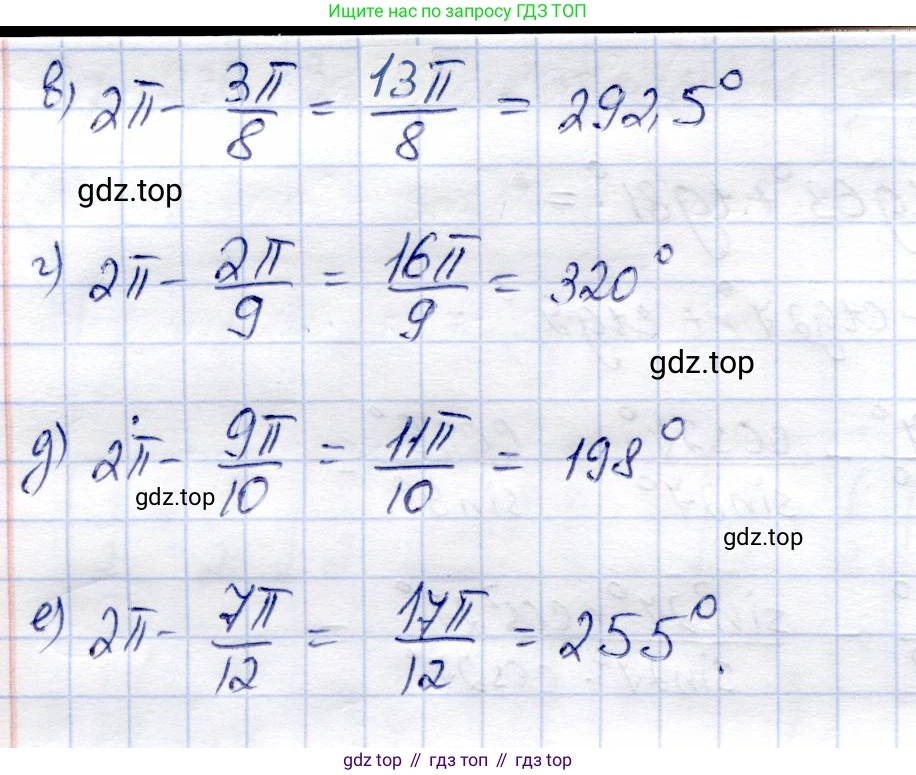 Ищите нас по запросу ГДЗ ТОП
в) 2π - 3π/8 = 13π/8 = 292,5°
gdz.top
г) 2π - 2π/9 = 16π/9 = 320°
gdz.top
д) 2π - 9π/10 = 11π/10 = 198°
gdz.top
gdz.top
е) 2π - 7π/12 = 17π/12 = 255°.
gdz top // гдз топ // гдз top